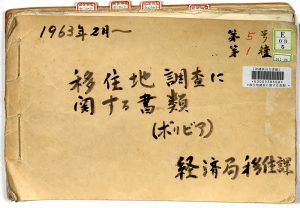 1963年2月～
第5号
第1種
移住地調査に
関する書類
(ボリビア)
経済局移住課
E